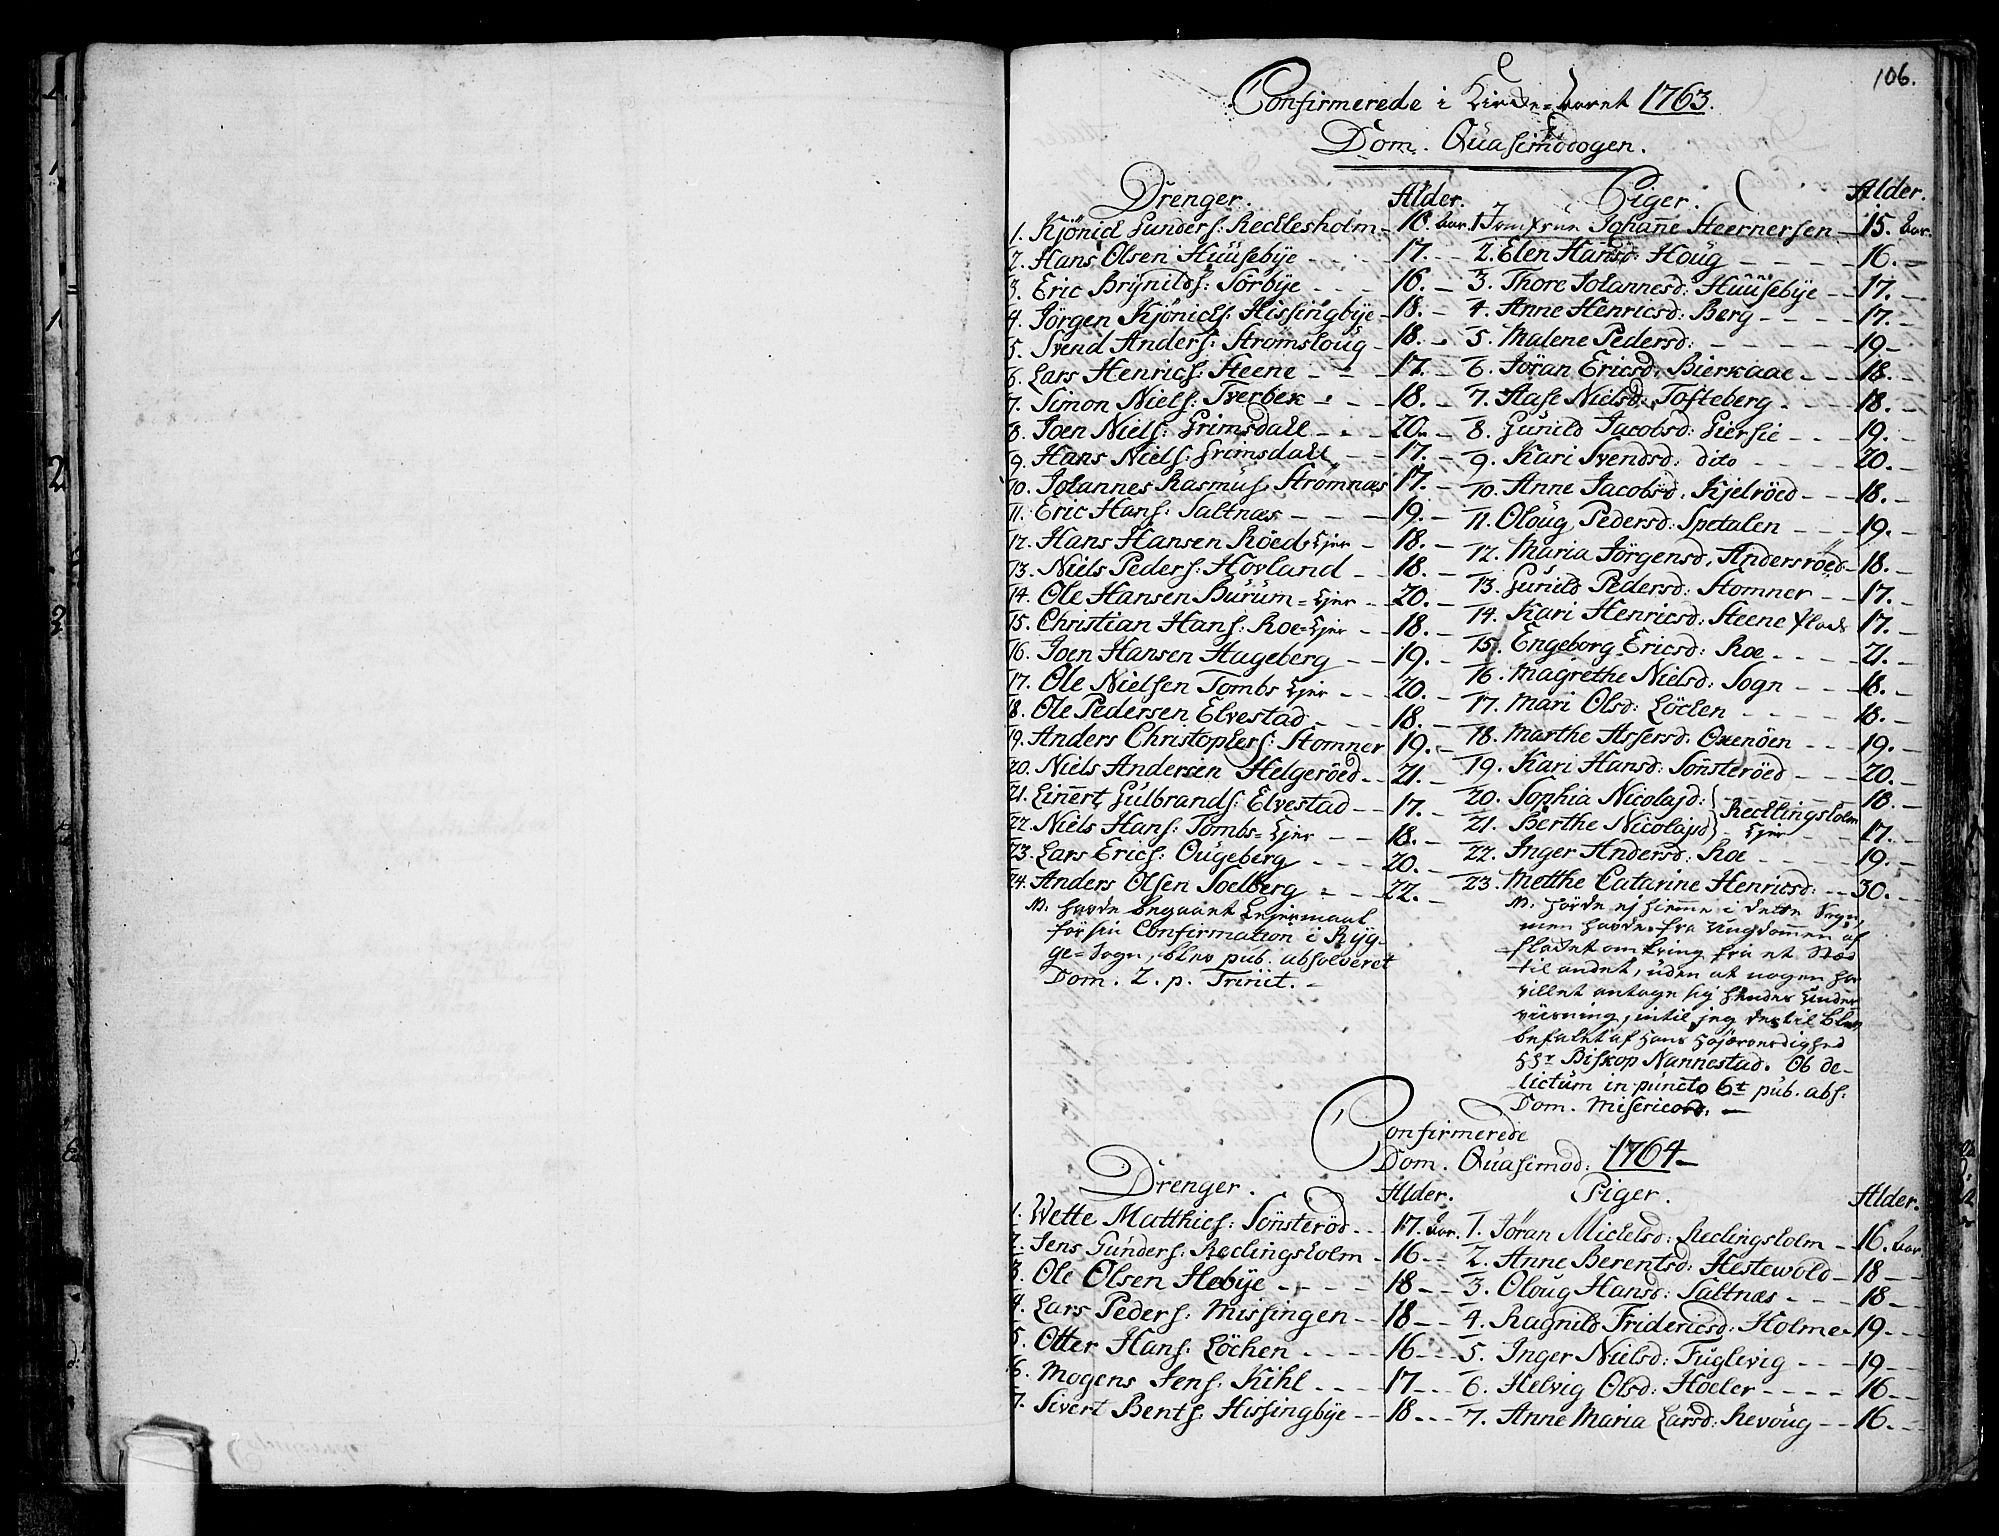 106.
Confirmerede i Kirke-Aaret 1763.
Dom. Quasimodogen.
Drenger. Alder.
1. Kjönid Gunders: Recklesholm 18. Aar.
2. Hans Olsen Huusebye 17.
3. Eric Brynilds: Sörbye 16.
4. Jörgen Kjönics: Hissingbye 18.
5. Svend Anders: Strömshoug 18.
6. Lars Henrics: Steene 17.
7. Simon Niels: Tverbek 18.
8. Joen Niels: Grimsdall 20.
9. Hans Niels: Grimsdall 17.
10. Johannes Rasmus. Strömnæs 17.
11. Eric Hans: Saltnæs 19.
12. Hans Hansen Röeds Ejer 18.
13. Niels Peders: Hovland 18.
14. Ole Hansen Burum=Ejer 20.
15. Christian Hans: Roe=Ejer 18.
16. Joen Hansen Hugeberg 19.
17. Ole Nielsen Tombs Ejer 20.
18. Ole Pedersen Elvestad 18.
19. Anders Christophers: Stomner 19.
20. Niels Andersen Helgeröed 21.
21. Linert Gulbrands: Elvestad 17.
22. Niels Hans: Tombs=Ejer 18.
23. Lars Erics: Ougeberg 20.
24. Anders Olsen Soelberg 22.
N: havde begaaet Lejermaal
for sin Confirmation i Ryg-
ge=Sogn, blev pub. absolveret
Dom. 2. p. Trinit.
Piger. Alder.
1 Jomfrue Johanne Steernersen 15. Aar.
2. Elen Hansd: Houg 16.
3. Thore Johannesd: Huusebye 17.
4. Anne Henricsd: Berg 17.
5. Malene Pedersd: 19
6. Jöran Ericsd: Bierkaae 18.
7. Aase Nielsd: Tofteberg 18.
8. Gunild Jacobsd: Giersie 19.
9. Kari Svendsd: dito 20.
10. Anne Jacobsd. Kjelröed 18.
11. Oloug Pedersd: Spetalen 19.
12. Maria Jörgensd. Andersröed 18.
13. Gunild Pedersd: Stomner 17.
14. Kari Henricsd: Steene Plads 17.
15. Engeborg Ericsd: Roe 21.
16. Magrethe Nielsd: Sogn 18.
17. Mari Olsd: Löchen 18.
18. Marthe Assersd: Oxenöen 19.
19. Kari Hansd: Sönsteröed 20.
20. Sophia Nicolajd: 18.
Recklingsholm Ejer
21. Berthe Nicolajsd 17.
22. Inger Andersd: Roe 19.
23. Metthe Catarine Henricsd: 30.
N: havde ej hieme i dette Sogn,
men havde fra Ungdommen af
flakket omkring fra et Sted
til andet, uden at nogen har
villet antage sig hendes Under
viisning, intil jeg dertil blev
befalet af Hans Höjærverdighed
Hr Biskop Nannestad. Ob de-
lictum in puncto 6t pub. abs:
Dom. Misericord:
Confirmerede
Dom. Quasimod: 1764
Drenger. Alder.
1. Wette Matthies: Sönsteröd 17. Aar.
2. Jens Gunders: Reclingsholm 16
3. Ole Olsen Hebye 18
4. Lars Peders: Missingen 18
5. Otter Hans: Löchen 16
6. Mogens Jens: Kihl 17
7. Sivert Bents: Hissingbye 18
Piger. Alder.
1. Jöran Mickelsd: Reclingsholm 16. Aar.
2. Anne Berentsd: Hestewold 18
3. Oloug Hansd: Saltnæs 18
4. Ragnild Fridericsd: Holme 19
5. Inger Nielsd: Fuglevig 19
6. Helvig Olsd: Hoeler 16
7. Anne Maria Larsd: Revoug 16